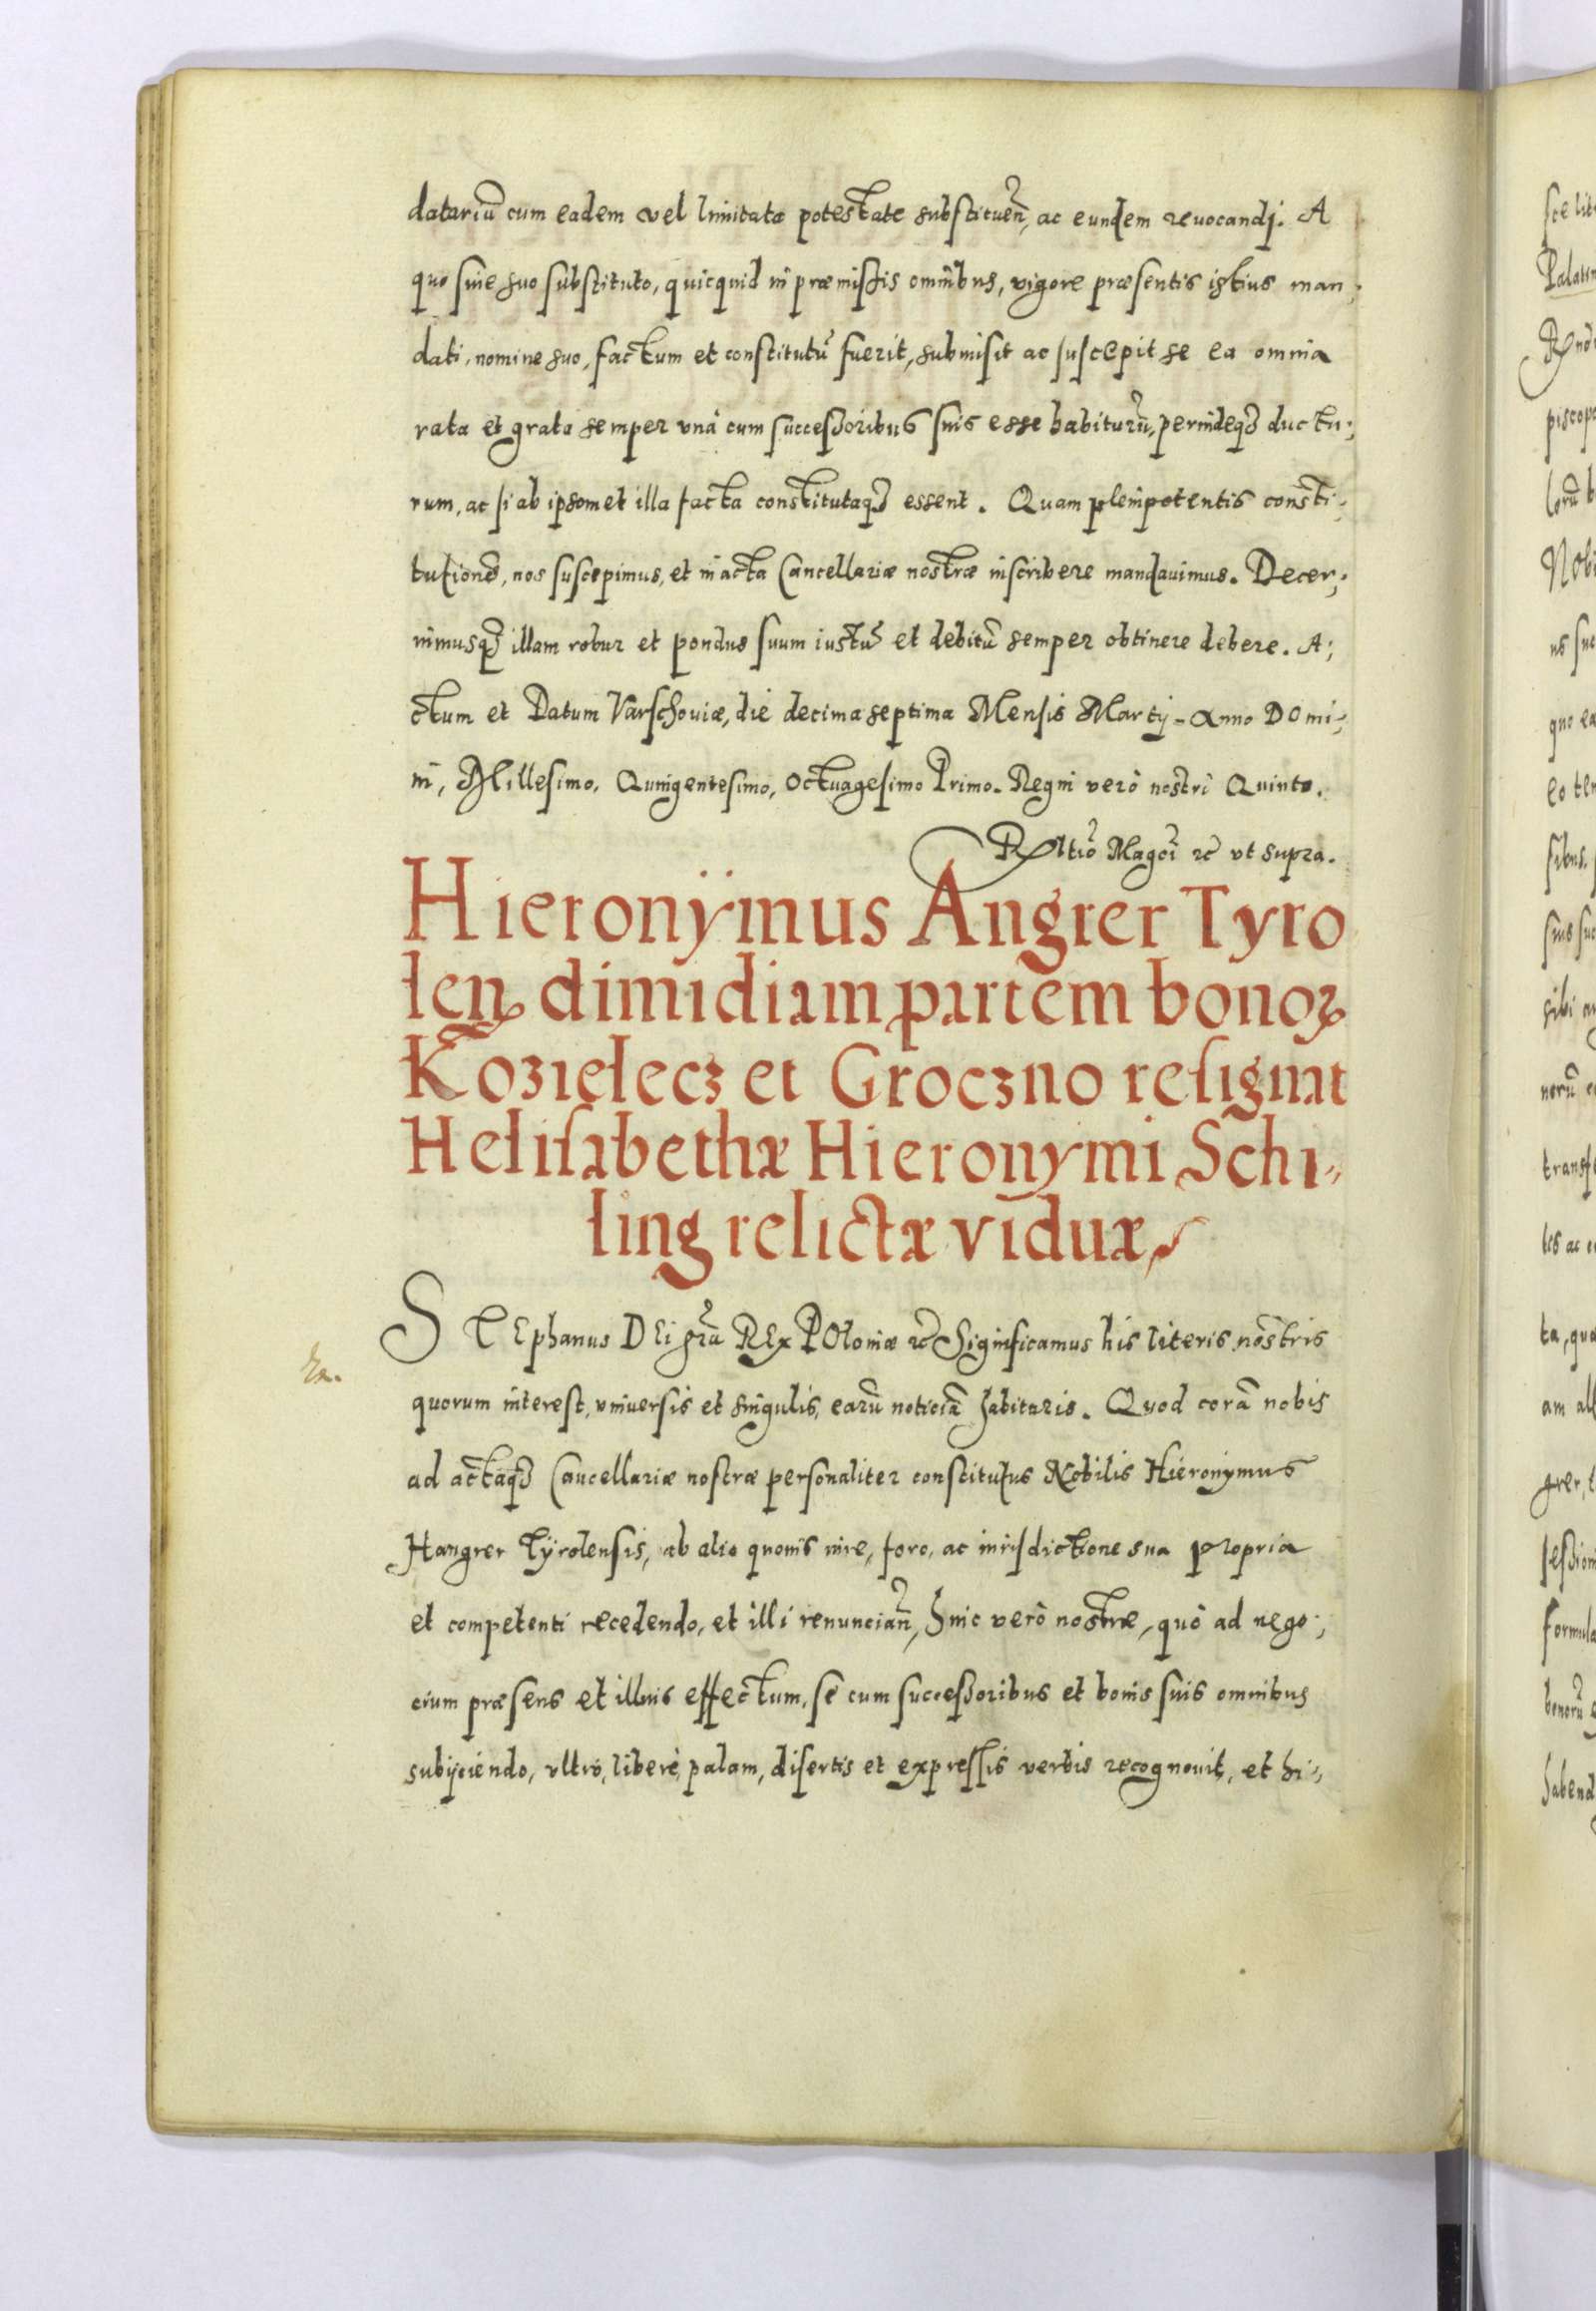 datariũ cum eadem vel limitata potestate substituen̄, ac eundem revocandi. A
quo siue suo substituto, quicquid in præmissis omnibus, vigore præsentis istius man;
dati, nomine suo, factum et constitutũ fuerit, submisit ac suscepit se ea omnia
rata et grata semper vnà cum successoribus suis esse habiturũ, perindeq3 ductu;
rum, ac si ab ipsomet illa facta constitutaq3 essent. Quam plenipotentis consti;
tutionẽ, nos suscepimus, et in acta Cancellariæ nostræ inscribere mandauimus. Decer;
nimusq3 illam robur et pondus suum iustũ et debitũ semper obtinere debere. A;
ctum et Datum Varschouiæ, die decima septima Mensis Martij - Anno Domi;
ni, Millesimo, Quingentesimo, Octuagesimo Primo. Regni verò nostri Quinto.
Rltio Magci ꝛc vt supra.
Hieronÿmus Angrer Tyro
len dimidiam partem bonoꝝ
Kozielecz et Groczno resignat
Helisabethæ Hieronymi Schi„
ling relictæ viduæ
STEphanus DEi gra̅ REx POloniæ ꝛc Significamus his literis nostris
quorum interest, vniuersis et singulis, earũ noticiã habituris. Quod corã nobis
ad actaq3 Cancellariæ nostræ personaliter constitutus Nobilis Hieronymus
Hangrer Tÿrolensis, ab alio quouis iure, foro, ac iurisdictione sua propria
et competenti recedendo, et illi renuncian̄, huic verò nostræ, quò ad nego;
cium præsens et illius effectum, se cum successoribus et bonis suis omnibus
subijciendo, vltrò, liberè, palam, disertis et expressis verbis recognouit, et hi;